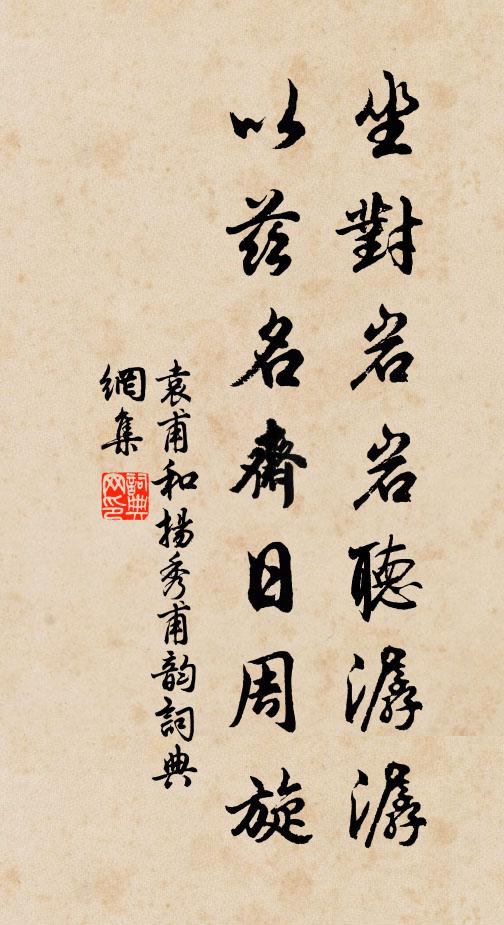 坐對岩岩聽潺潺
以茲名齋日周旋
袁甫和揚秀甫韵詞典
網集
詞典
网印